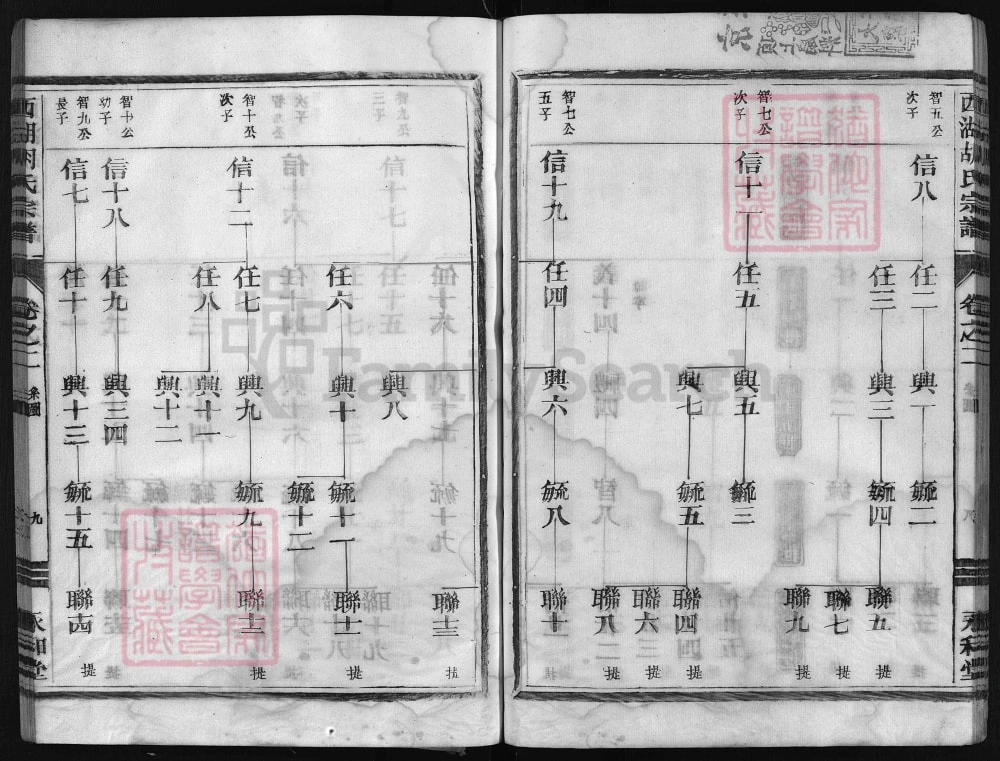 西湖胡氏宗譜
卷之二
系圖
八
永和堂
智五公
次子
信八
任二
興一
毓二
任三
興三
毓四
聯五
提
聯七
聯九
提
智七公
次子
信十一
任五
興五
毓三
興七
毓五
聯四
提
聯六
提
聯八
提
智七公
五子
信十九
任四
興六
毓八
聯十
提
聯十三
提
興八
任六
興十
毓十一
聯十一
提
毓十二
智十公
次子
信十二
任七
興九
毓九
聯十二
提
任八
興十一
興十二
智十公
幼子
信十八
任九
興三四
智九公
長子
信七
任十一
興十三
毓十五
聯十四
提
西湖胡氏宗譜
卷之二
系圖
九
永和堂
FamilySearch